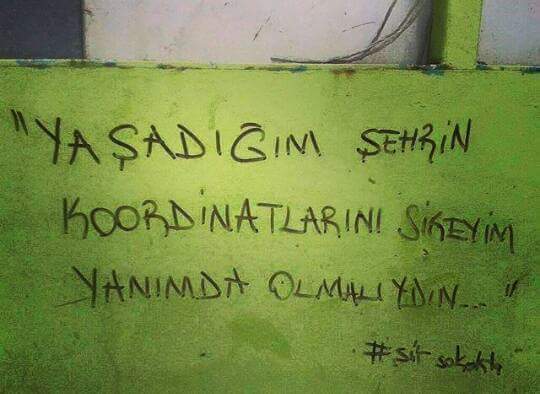 "YAŞADIĞIM ŞEHRİN
KOORDİNATLARINI SİKEYİM
YANIMDA OLMALIYDIN..."
#şiir sokakta